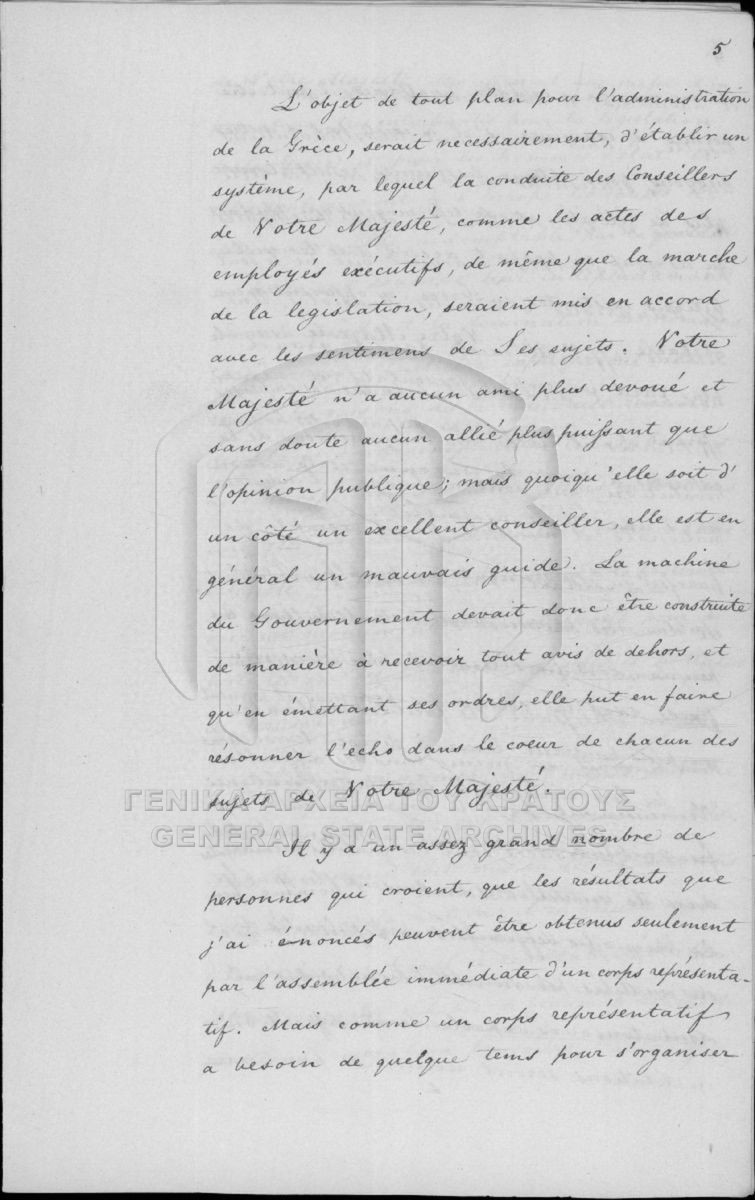 5
L'objet de tout plan pour l'administration
de la Grèce, serait necessairement, d'établir un
système, par lequel la conduite des Conseillers
de Votre Majesté, comme les actes des
employés exécutifs, de même que la marche
de la legislation, seraient mis en accord
avec les sentimens de Ses sujets. Votre
Majesté n'a aucun ami plus devoué et
sans doute aucun allié plus puissant que
l'opinion publique; mais quoiqu'elle soit d'
un côté un excellent conseiller, elle est en
général un mauvais guide. La machine
du Gouvernement devait donc être construite
de manière à recevoir tout avis de dehors, et
qu'en émettant ses ordres, elle put en faire
résonner l'echo dans le coeur de chacun des
sujets de Votre Majesté.
ΓΕΝΙΚΑ ΑΡΧΕΙΑ ΤΟΥ ΚΡΑΤΟΥΣ
GENERAL STATE ARCHIVES
Il y a un assez grand nombre de
personnes qui croient, que les résultats que
j'ai énoncés peuvent être obtenus seulement
par l'assemblée immédiate d'un corps représenta-
tif. Mais comme un corps représentatif
a besoin de quelque tems pour s'organiser